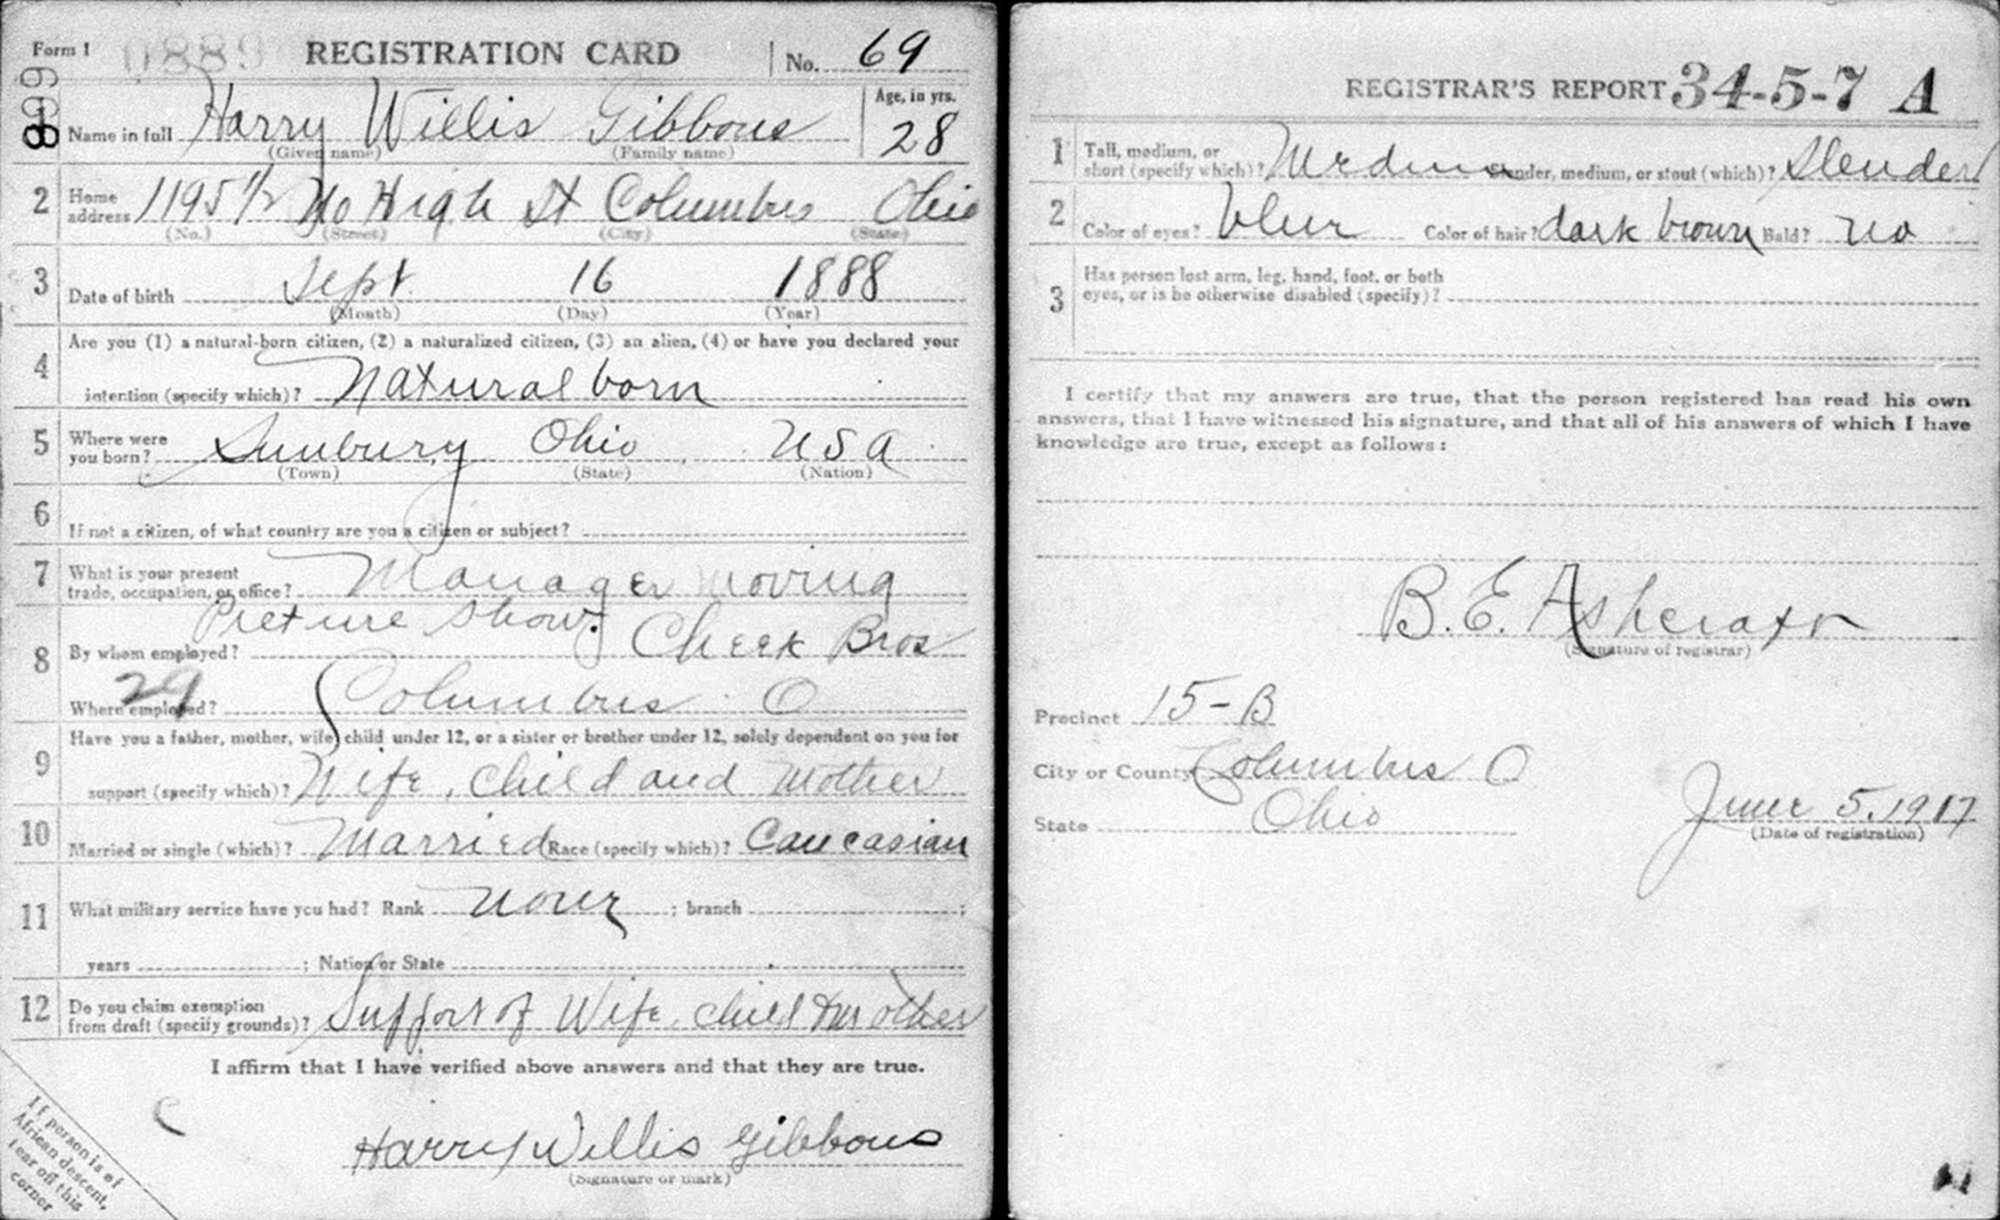 Form 1 0889 REGISTRATION CARD No. 69
899
1 Name in full Harry Willis Gibbons Age, in yrs. 28
(Given name) (Family name)
2 Home address 1195 1/2 No High St Columbus Ohio
(No.) (Street) (City) (State)
3 Date of birth Sept. 16 1888
(Month) (Day) (Year)
4 Are you (1) a natural-born citizen, (2) a naturalized citizen, (3) an alien, (4) or have you declared your
intention (specify which)? Natural born
5 Where were you born? Sunbury Ohio USA
(Town) (State) (Nation)
6 If not a citizen, of what country are you a citizen or subject?
7 What is your present trade, occupation, or office? Manager Moving
Picture Show.
8 By whom employed? Cheek Bros
29
Where employed? Columbus O
9 Have you a father, mother, wife, child under 12, or a sister or brother under 12, solely dependent on you for
support (specify which)? Wife, Child and Mother
10 Married or single (which)? Married Race (specify which)? Caucasian
11 What military service have you had? Rank None ; branch ;
years ; Nation or State
12 Do you claim exemption from draft (specify grounds)? Support of Wife, child & mother
I affirm that I have verified above answers and that they are true.
Harry Willis Gibbons
(Signature or mark)
If person is of
African descent,
tear off this
corner
REGISTRAR'S REPORT 34-5-7 A
1 Tall, medium, or short (specify which)? Medium Slender, medium, or stout (which)? Slender
2 Color of eyes? blue Color of hair? dark brown Bald? no
3 Has person lost arm, leg, hand, foot, or both
eyes, or is he otherwise disabled (specify)?
I certify that my answers are true, that the person registered has read his own
answers, that I have witnessed his signature, and that all of his answers of which I have
knowledge are true, except as follows:
B. E. Ashcraft
(Signature of registrar)
Precinct 15-B
City or County Columbus O
State Ohio
June 5, 1917
(Date of registration)